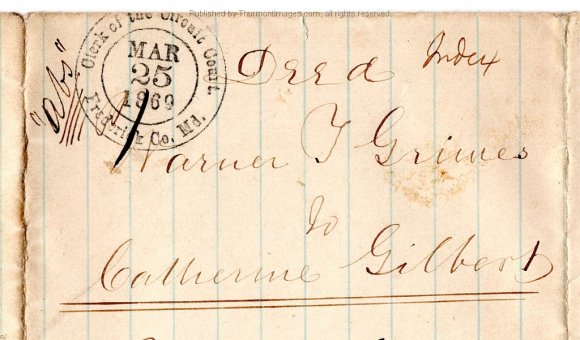 Published by Thurmontimages.com, all rights reserved
Clerk of the Circuit Court.
MAR
25
1869
Frederick Co. Md.
Deed Index
Warner T Grimes
to
Catherine Gilbert